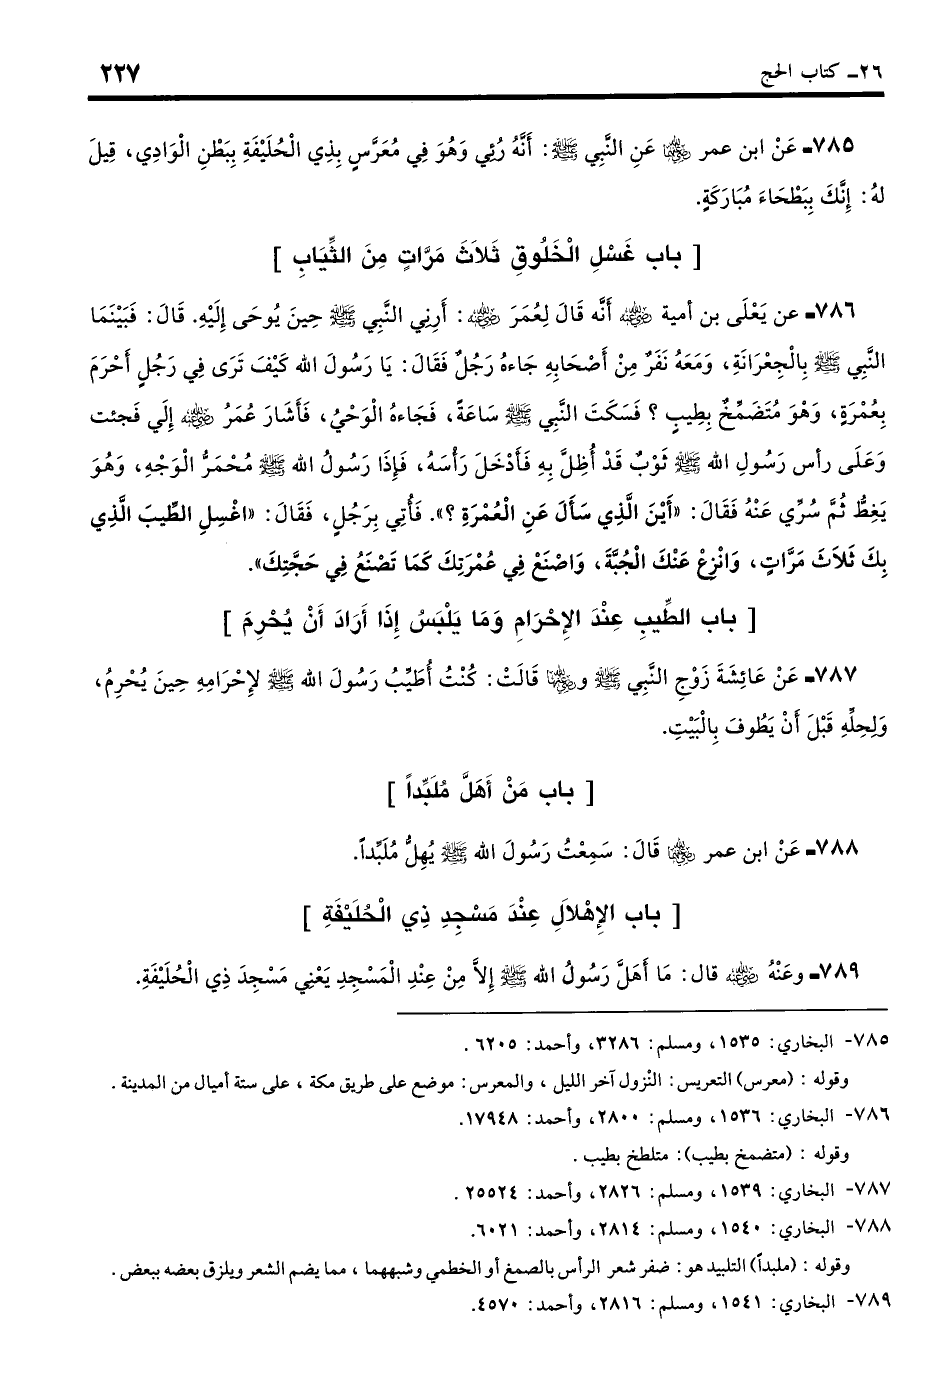 ٢٦ـ كتاب الحج
٢٢٧
٧٨٥ـ عَنْ ابن عمر رضي الله عنهما عَنِ النَّبِي ﷺ: أَنَّهُ رُئِي وَهُوَ فِي مُعَرَّسٍ بِذِي الْحُلَيْفَةِ بِبَطْنِ الْوَادِي، قِيلَ
لهُ: إِنَّكَ بِبَطْحَاءَ مُبَارَكَةٍ.
[ باب غَسْلِ الْخَلُوقِ ثَلاَثَ مَرَّاتٍ مِنَ الثِّيَابِ ]
٧٨٦ـ عن يَعْلَى بن أمية رضي الله عنه أَنَّه قَالَ لِعُمَرَ رضي الله عنه: أَرِنِي النَّبي ﷺ حِينَ يُوحَى إِلَيْهِ. قَالَ: فَبَيْنَمَا
النَّبِي ﷺ بِالْجِعْرَانَةِ، وَمَعَهُ نَفَرٌ مِنْ أَصْحَابِهِ جَاءهُ رَجُلٌ فَقَالَ: يَا رَسُولَ الله كَيْفَ تَرَى فِي رَجُلٍ أَحْرَمَ
بِعُمْرَةٍ، وَهْوَ مُتَضَمِّخٌ بِطِيبٍ ؟ فَسَكَتَ النَّبِي ﷺ سَاعَةً، فَجَاءهُ الْوَحْيُ، فَأَشَارَ عُمَرُ رضي الله عنه إِلَي فَجئت
وَعَلَى رأس رَسُولِ الله ﷺ ثَوْبٌ قَدْ أُظِلَّ بِهِ فَأَدْخَلَ رَأْسَهُ، فَإِذَا رَسُولُ الله ﷺ مُحْمَرُّ الْوَجْهِ، وَهُوَ
يَغِطُّ ثُمَّ سُرِّي عَنْهُ فَقَالَ: «أَيْنَ الَّذِي سَأَلَ عَنِ الْعُمْرَةِ ؟». فَأُتِي بِرَجُلٍ، فَقَالَ: «اغْسِلِ الطِّيبَ الَّذِي
بِكَ ثَلاَثَ مَرَّاتٍ، وَانْزِعْ عَنْكَ الْجُبَّةَ، وَاصْنَعْ فِي عُمْرَتِكَ كَمَا تَصْنَعُ فِي حَجَّتِكَ».
[ باب الطِّيبِ عِنْدَ الإِحْرَامِ وَمَا يَلْبَسُ إِذَا أَرَادَ أَنْ يُحْرِمَ ]
٧٨٧ـ عَنْ عَائِشَةَ زَوْجِ النَّبِي ﷺ ورضي الله عنها قَالَتْ: كُنْتُ أُطَيِّبُ رَسُولَ الله ﷺ لإِحْرَامِهِ حِينَ يُحْرِمُ،
وَلِحِلِّهِ قَبْلَ أَنْ يَطُوفَ بِالْبَيْتِ.
[ باب مَنْ أَهَلَّ مُلَبِّداً ]
٧٨٨ـ عَنْ ابن عمر رضي الله عنهما قَالَ: سَمِعْتُ رَسُولَ الله ﷺ يُهِلُّ مُلَبِّداً.
[ باب الإِهْلاَلِ عِنْدَ مَسْجِدِ ذِي الْحُلَيْفَةِ ]
٧٨٩ـ وعَنْهُ رضي الله عنه قال: مَا أَهَلَّ رَسُولُ الله ﷺ إِلاَّ مِنْ عِنْدِ الْمَسْجِدِ يَعْنِي مَسْجِدَ ذِي الْحُلَيْفَةِ.
٧٨٥- البخاري: ١٥٣٥، ومسلم: ٣٢٨٦، وأحمد: ٦٢٠٥ .
وقوله : (معرس) التعريس: النْزول آخر الليل ، والمعرس: موضع على طريق مكة ، على ستة أميال من المدينة .
٧٨٦- البخاري: ١٥٣٦، ومسلم: ٢٨٠٠، وأحمد: ١٧٩٤٨.
وقوله : (متضمخ بطيب): متلطخ بطيب .
٧٨٧- البخاري: ١٥٣٩، ومسلم: ٢٨٢٦، وأحمد: ٢٥٥٢٤ .
٧٨٨- البخاري: ١٥٤٠، ومسلم: ٢٨١٤، وأحمد: ٦٠٢١.
وقوله : (ملبداً) التلبيد هو: ضفر شعر الرأس بالصمغ أو الخطمي وشبههما ، مما يضم الشعر ويلزق بعضه ببعض .
٧٨٩- البخاري: ١٥٤١، ومسلم: ٢٨١٦، وأحمد: ٤٥٧٠.